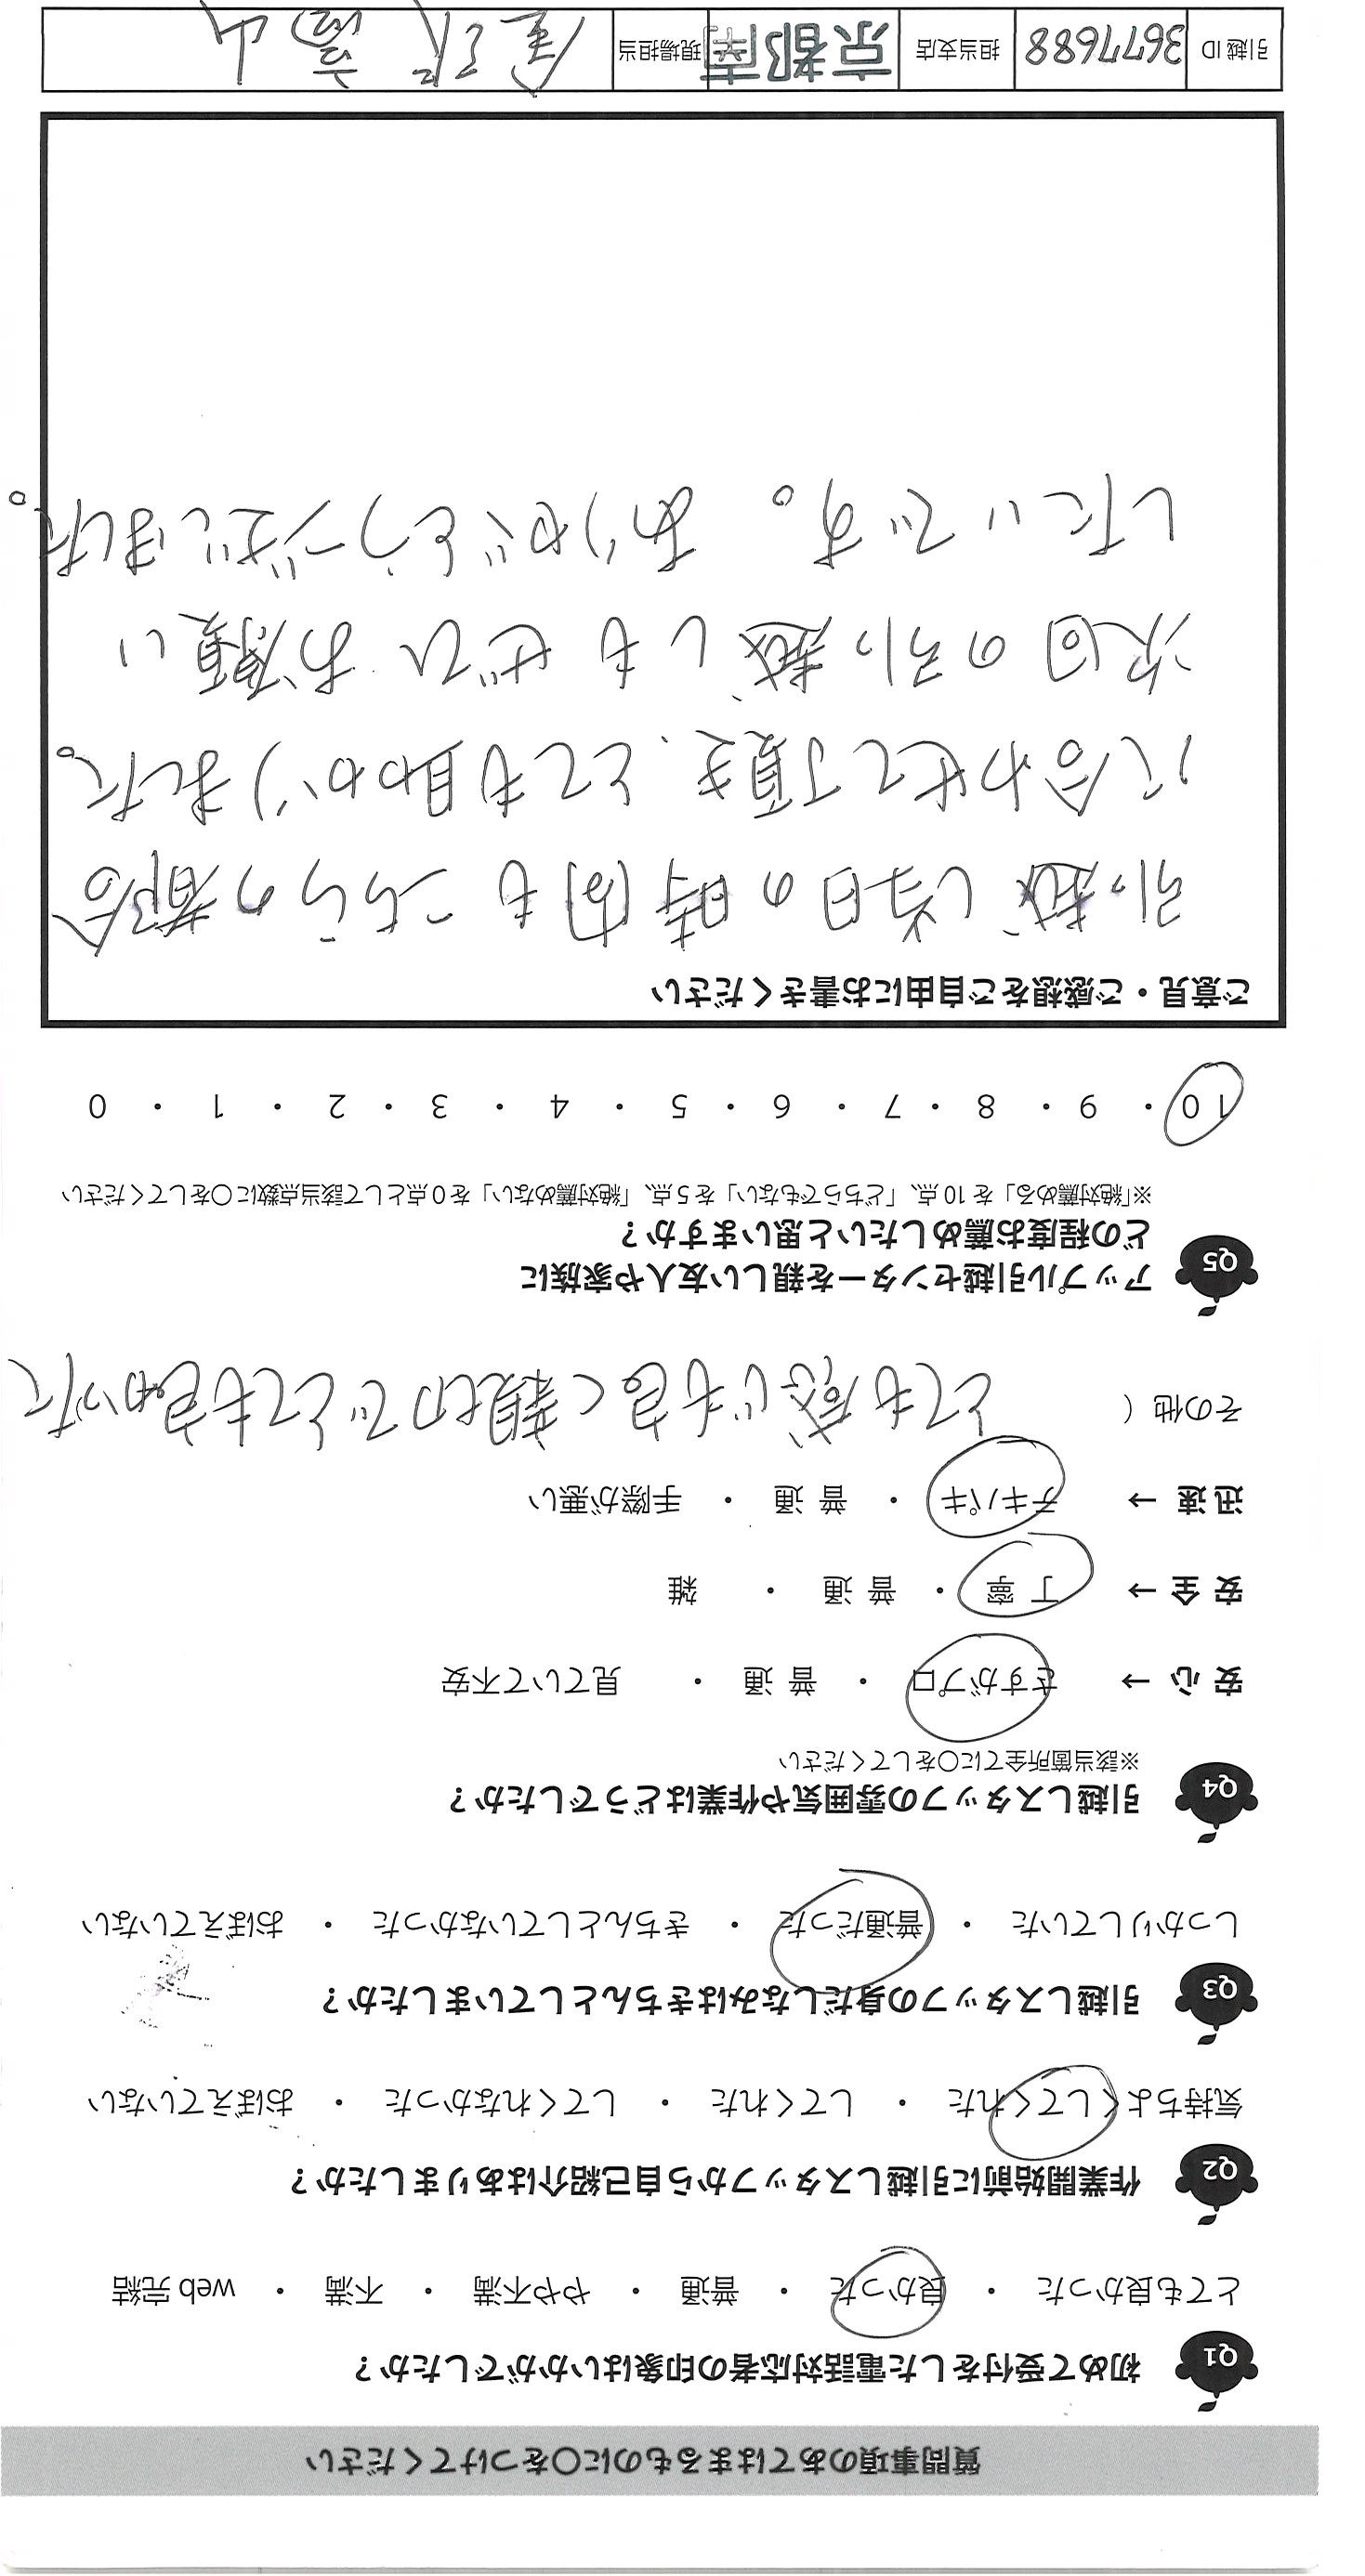 質問事項のあてはまるものに〇をつけてください
Q1 初めて受付をした電話対応者の印象はいかがでしたか？
とても良かった ・ 良かった ・ 普通 ・ やや不満 ・ 不満 ・ web 完結
Q2 作業開始前に引越しスタッフから自己紹介はありましたか？
気持ちよくしてくれた ・ してくれた ・ してくれなかった ・ おぼえていない
Q3 引越しスタッフの身だしなみはきちんとしていましたか？
しっかりしていた ・ 普通だった ・ きちんとしていなかった ・ おぼえていない
Q4 引越しスタッフの雰囲気や作業はどうでしたか？
※該当箇所全てに〇をしてください
安 心 → さすがプロ ・ 普 通 ・ 見ていて不安
安 全 → 丁 寧 ・ 普 通 ・ 雑
迅 速 → テキパキ ・ 普 通 ・ 手際が悪い
その他（ とても感じも良く親切でとても良かった
Q5 アップル引越センターを親しい友人や家族に
どの程度お薦めしたいと思いますか？
※「絶対薦める」を 10 点、「どちらでもない」を 5 点、「絶対薦めない」を 0 点として該当点数に〇をしてください
10 ・ 9 ・ 8 ・ 7 ・ 6 ・ 5 ・ 4 ・ 3 ・ 2 ・ 1 ・ 0
ご意見・ご感想をご自由にお書きください
引っ越し当日の時間もこちらの都合
に合わせて頂き、とても助かりました。
次回の引っ越しもぜひお願い
したいです。 ありがとうございました。
引越 ID 3677688 担当支店 京都南 現場担当 高山